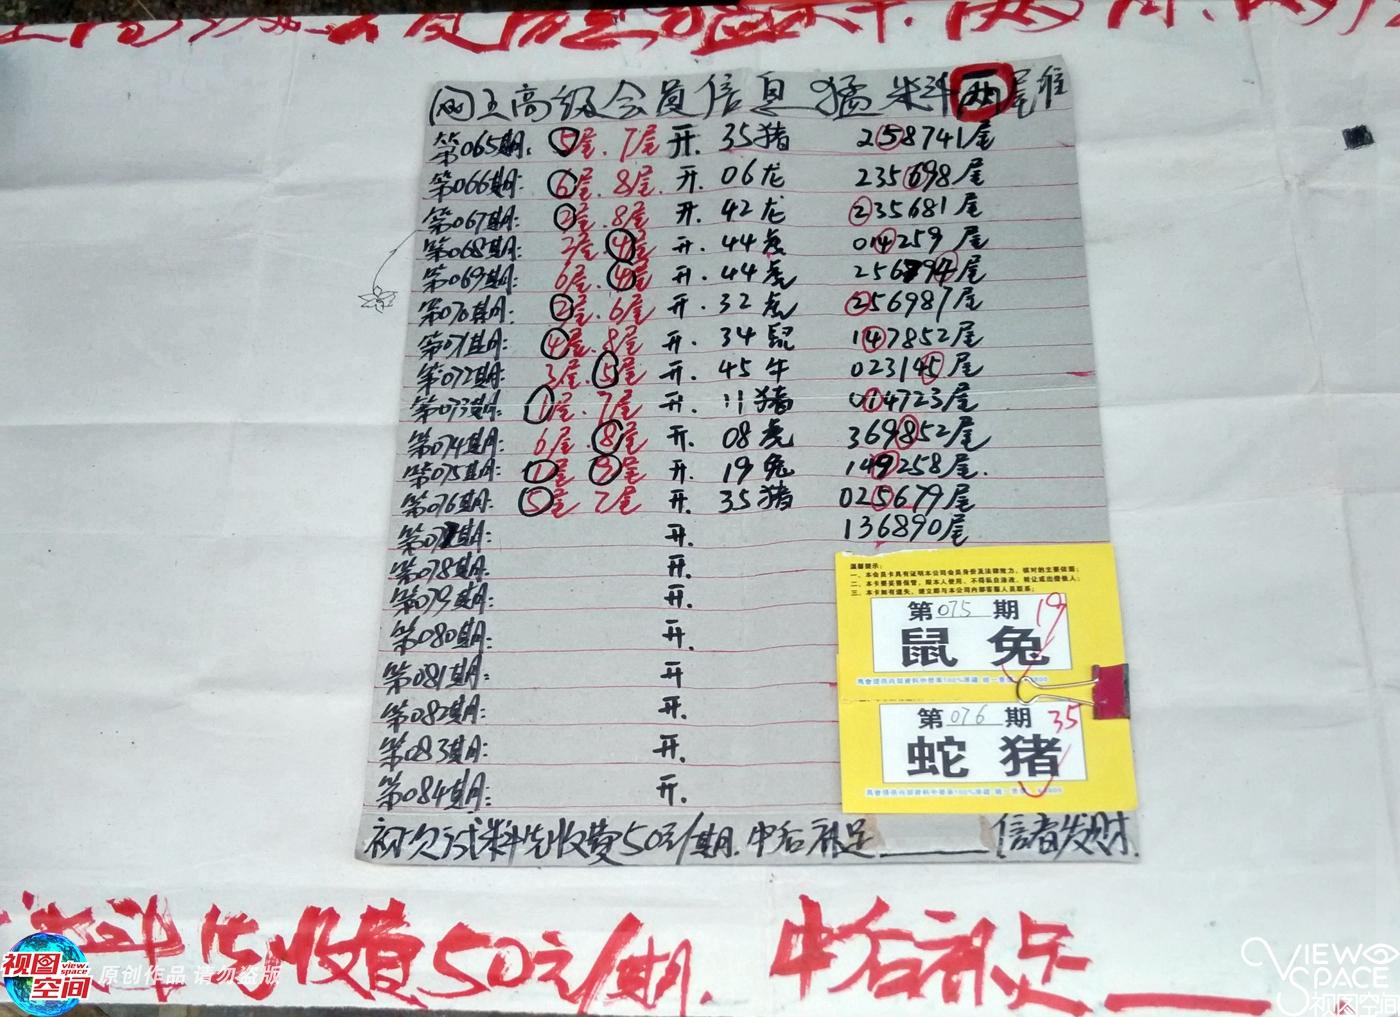 网上高级会员信息猛料两尾准
第065期: 5尾.7尾 开. 35猪 258741尾
第066期: 6尾.8尾. 开. 06龙 235698尾
第067期: 2尾.8尾 开. 42龙 235681尾
第068期: 尾.4尾 开. 44虎 014259尾
第069期: 6尾.4尾 开. 44虎 256794尾
第070期: 2尾.6尾 开. 32虎 256987尾
第071期: 4尾.8尾 开. 34鼠 147852尾
第072期: 3尾.5尾 开. 45牛 023145尾
第073期: 1尾.7尾 开. 11猪 014723尾
第074期: 6尾.8尾 开. 08虎 369852尾
第075期: 1尾 9尾 开. 19兔 149258尾.
第076期: 5尾 7尾 开. 35猪 025679尾
第077期: 开. 136890尾
第078期: 开.
第079期: 开.
第080期: 开.
第081期: 开
第082期: 开.
第083期: 开.
第084期: 开.
温馨提示:
一、本会员卡具有证明本公司会员身份及法律效力，核对的主要依据;
二、本卡要妥善保管，限本人使用，不得私自涂改，转让或出借他人;
三、本卡如有遗失，请立即与本公司内部客服人员联系;
第075期 19
鼠 兔
第076期 35
蛇 猪
初次试料先收费50元/期.中后补足____信者发财.
料先收费50元/期. 中后补足____
视图空间 view.space
原创作品 请勿盗版
VIEW SPACE 视图空间